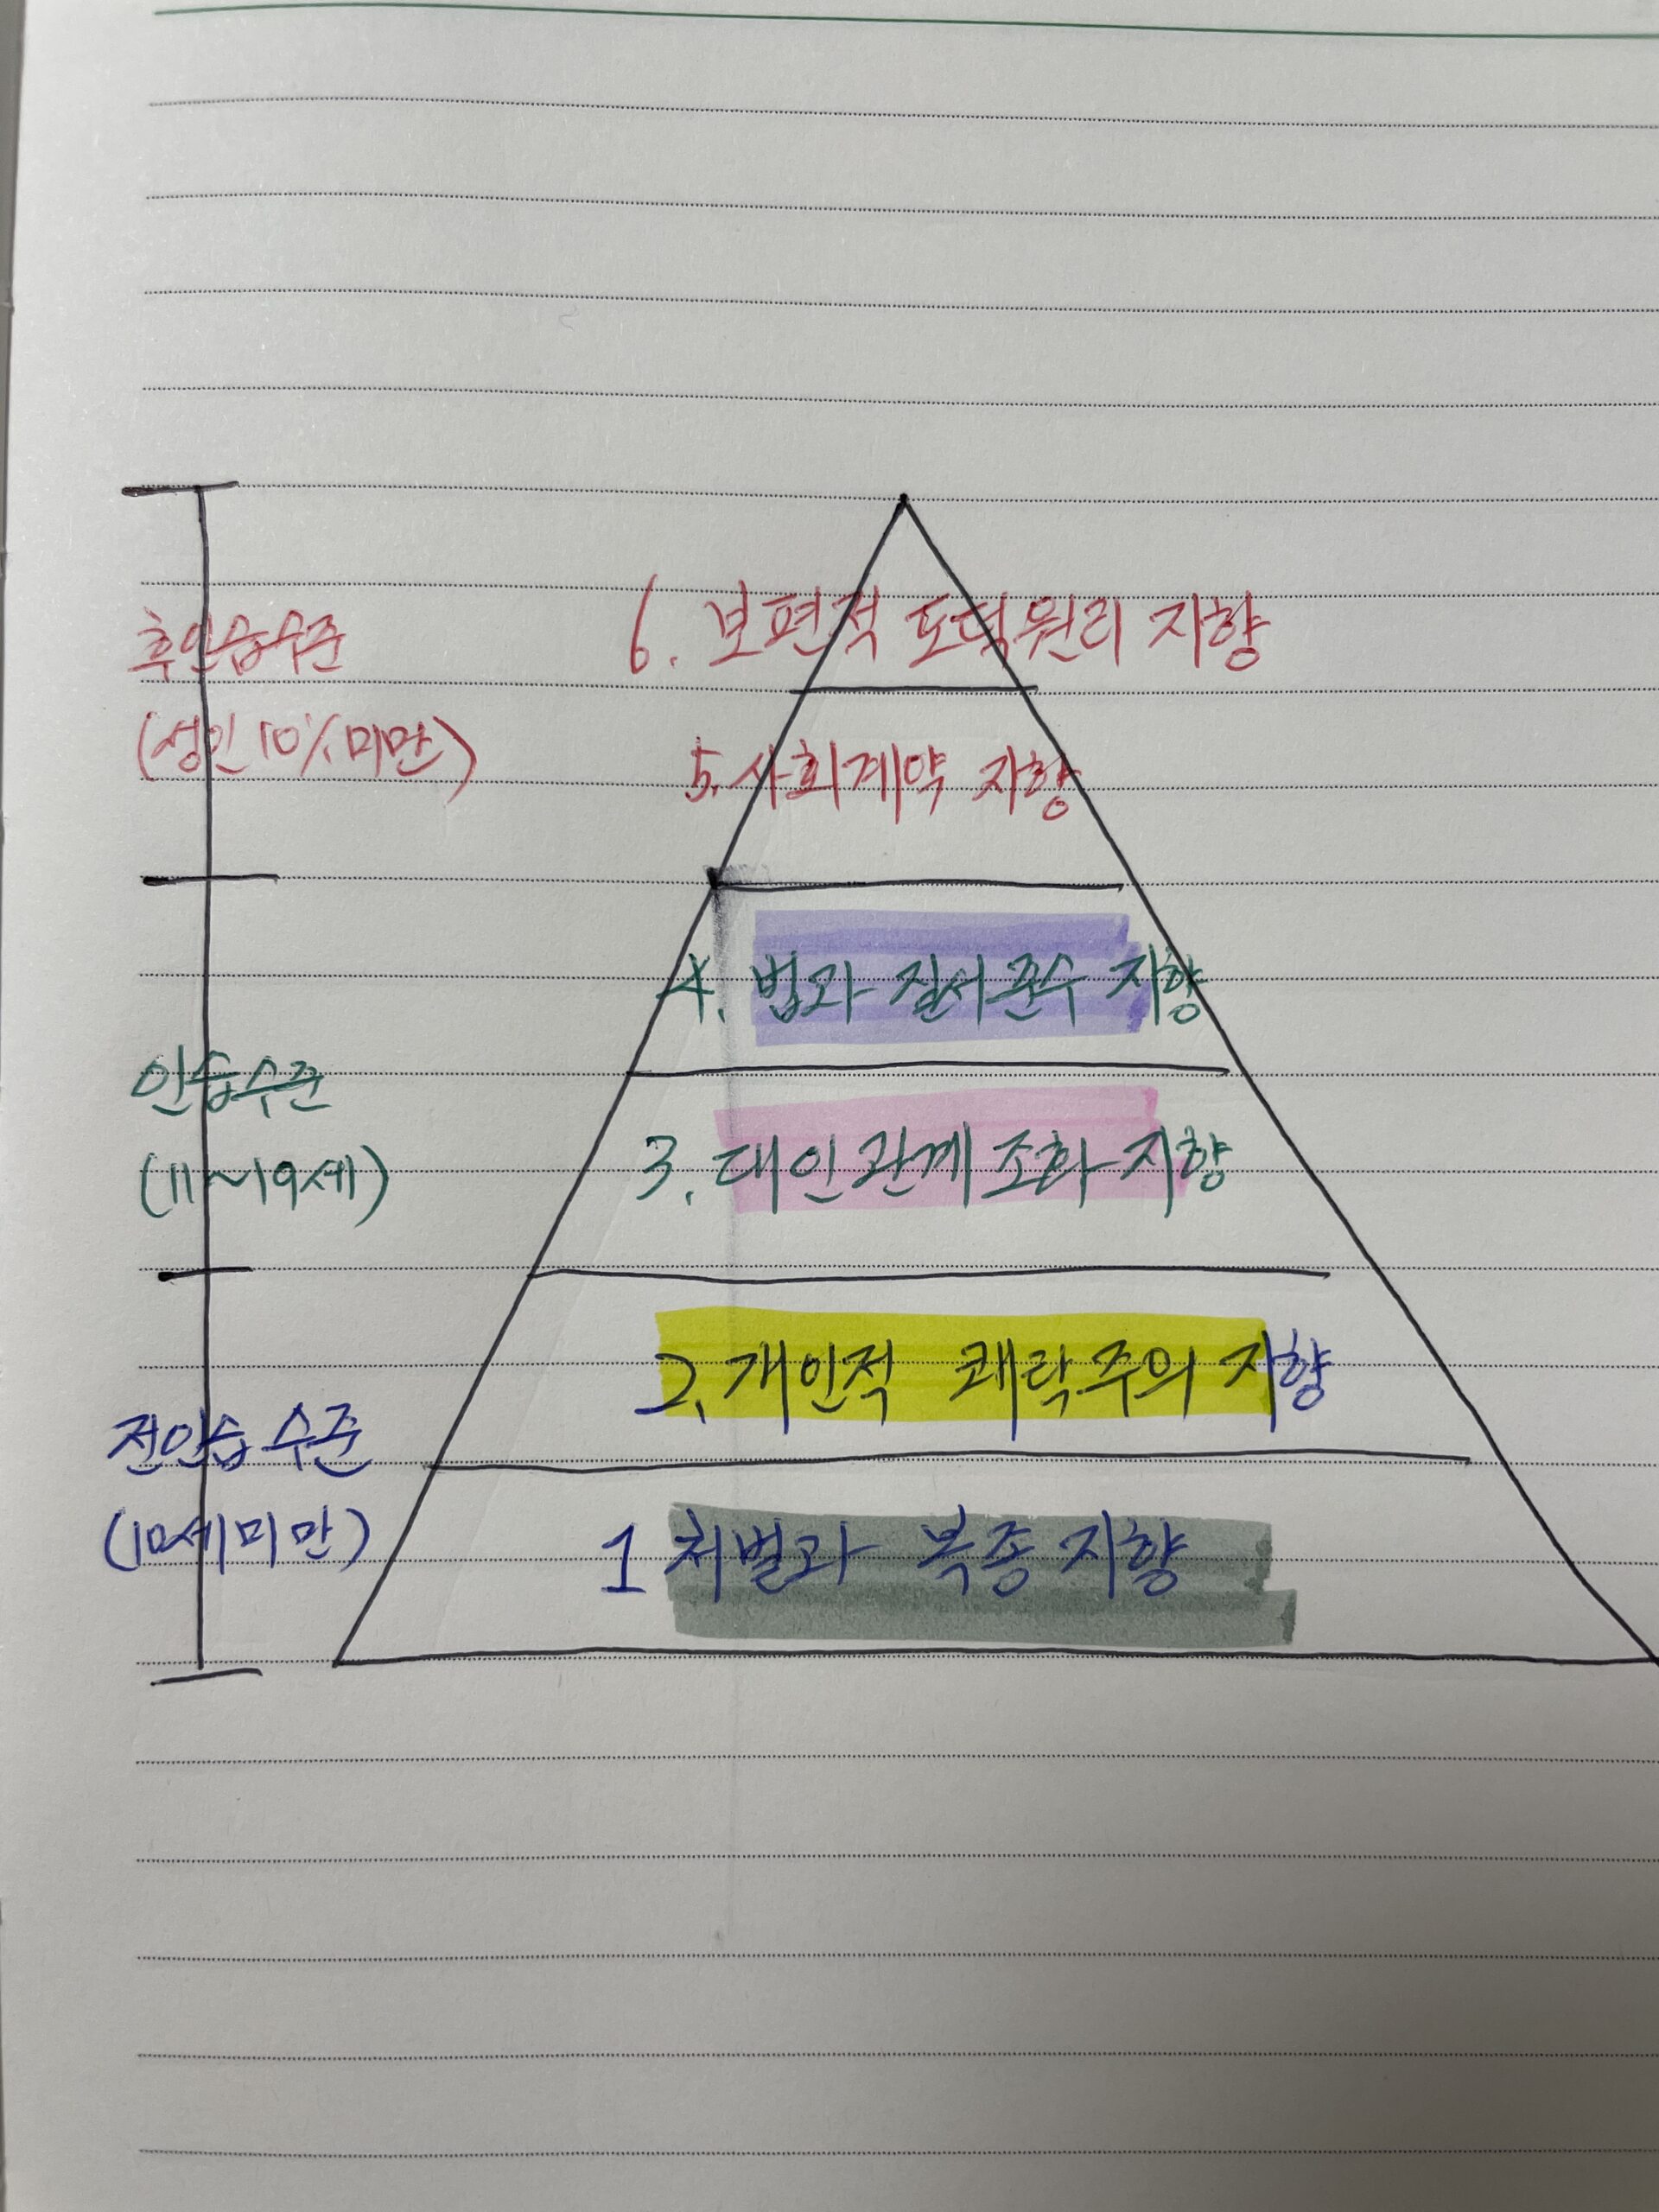 후인습수준
(성인 10%미만)
6. 보편적 도덕원리 지향
5. 사회계약 지향
인습수준
(11~19세)
4. 법과 질서준수 지향
3. 대인관계조화 지향
전인습 수준
(10세미만)
2. 개인적 쾌락주의 지향
1 처벌과 복종지향